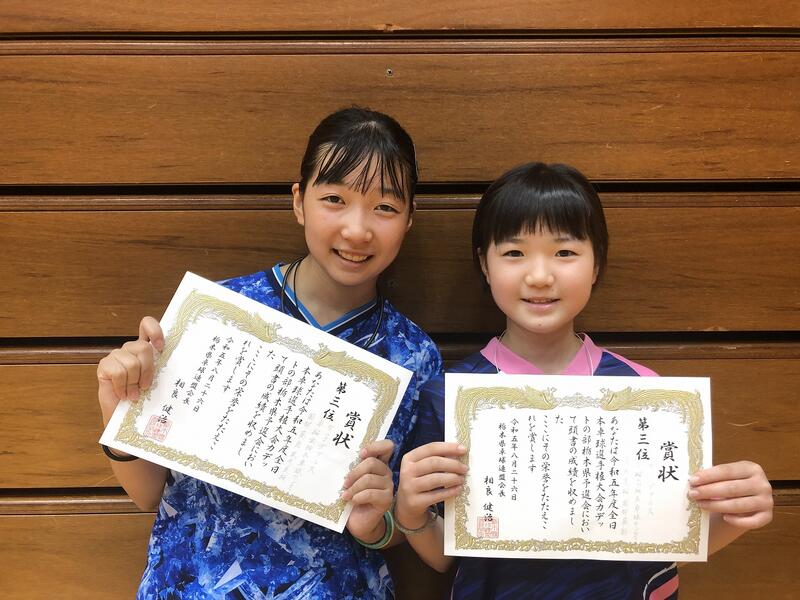 賞状
第三位
あなたは令和五年度全日
本卓球選手権大会カデッ
トの部栃木県予選会におい
て頭書の成績を収めまし
た
ここにその栄誉をたたえこ
れを賞します
令和五年八月二十六日
栃木県卓球連盟会長
相良 健治
賞状
第三位
あなたは令和五年度全日
本卓球選手権大会カデッ
トの部栃木県予選会におい
て頭書の成績を収めまし
た
ここにその栄誉をたたえこ
れを賞します
令和五年八月二十六日
栃木県卓球連盟会長
相良 健治